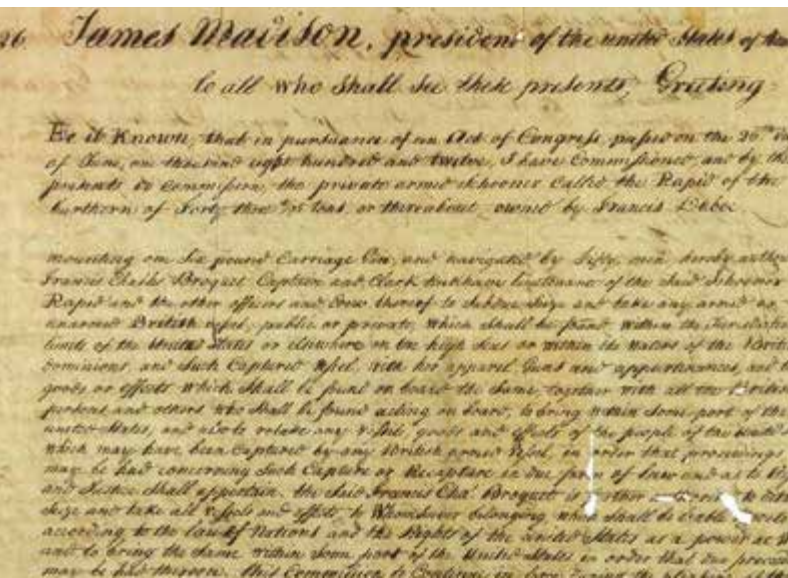 26. James Madison, president of the united States of
to all who shall see these presents, Greeting:
Be it Known, that in pursuance of an Act of Congress passed on the 26th
of June, one thousand eight hundred and twelve, I have Commissioned, and by
presents do Commission, the private armed Schooner Called the Rapid of the
burthern of Forty three tons, or thereabout, owned by Francis
mounting one Six pound Carriage Gun, and navigated by fifty men hereby
Francis Charles Broquet Captain and Clark lieutenant of the said Schooner
Rapid and the other officers and Crew thereof to Subdue Seize and take any armed or
unarmed British vessel, public or private, which shall be found within the
limits of the United States or elsewhere on the high seas or within the waters of the
dominions, and such Captured vessel, with her apparel, Guns and appurtenances, and
goods or effects which shall be found on board the same, together with all the British
persons and others who shall be found acting on board, to bring within some port of the
united States, and also to retake any vessels goods and effects of the people of the
which may have been Captured by any British armed vessel, in order that proceedings
may be had concerning such Capture or Recapture in due form of law and as to
and Justice shall appertain, the said Francis Cha. Broquet is further to
Seize and take all vessels and effects to Whomsoever belonging, which shall be liable
according to the law of Nations and the Rights of the united States as a power at
and to bring the same within some port of the United States in order that due
may be had thereon. This Commission to Continue in force